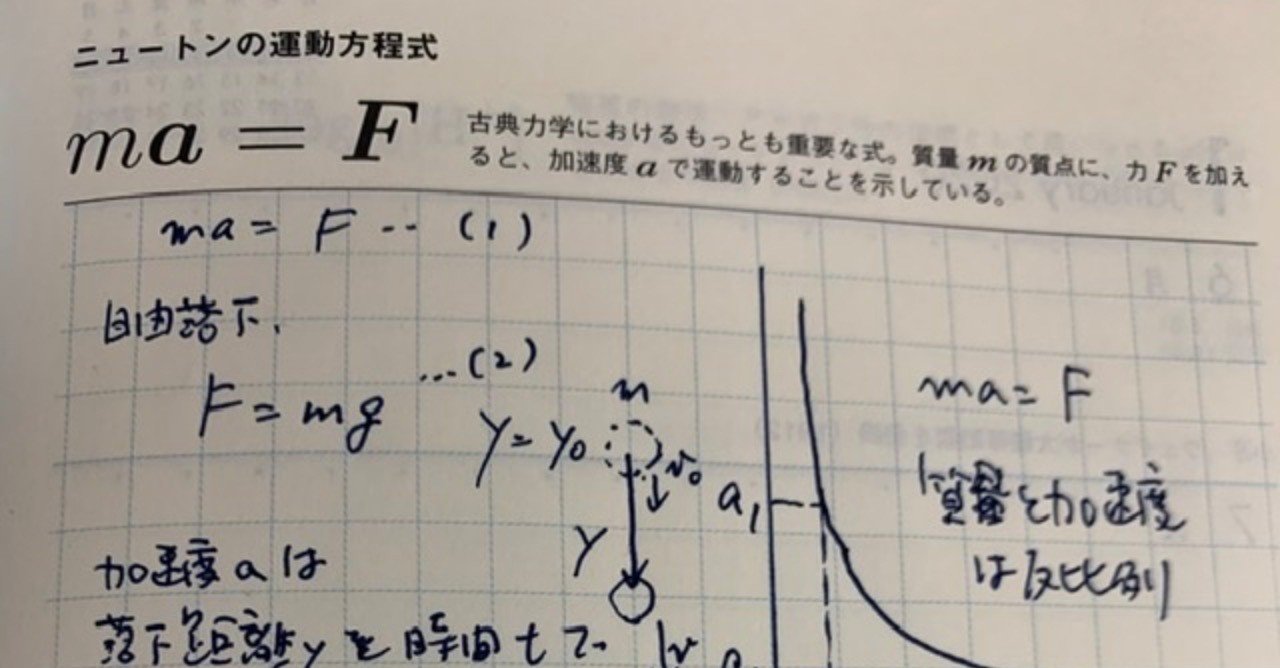 ニュートンの運動方程式
ma = F
古典力学におけるもっとも重要な式。質量 m の質点に、力 F を加え
ると、加速度 a で運動することを示している。
ma = F ‥ (1)
自由落下.
F = mg …(2)
m
y = y₀
v₀
y
a₁
ma = F
質量と加速度
は反比例
加速度 a は
落下距離 y を時間 t で
v